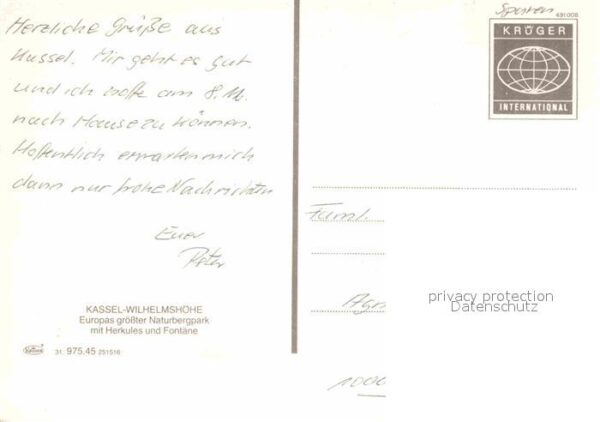 Herzliche Grüße aus
Kassel. Mir geht es gut
und ich hoffe am 8.
nach Hause zu können.
Hoffentlich erwarten mich
dann nur frohe Nachrichten
Euer
Peter
KASSEL-WILHELMSHÖHE
Europas größter Naturbergpark
mit Herkules und Fontäne
Krüger 31. 975.45 251516
491008
KRÜGER
INTERNATIONAL
Faml.
privacy protection
Datenschutz